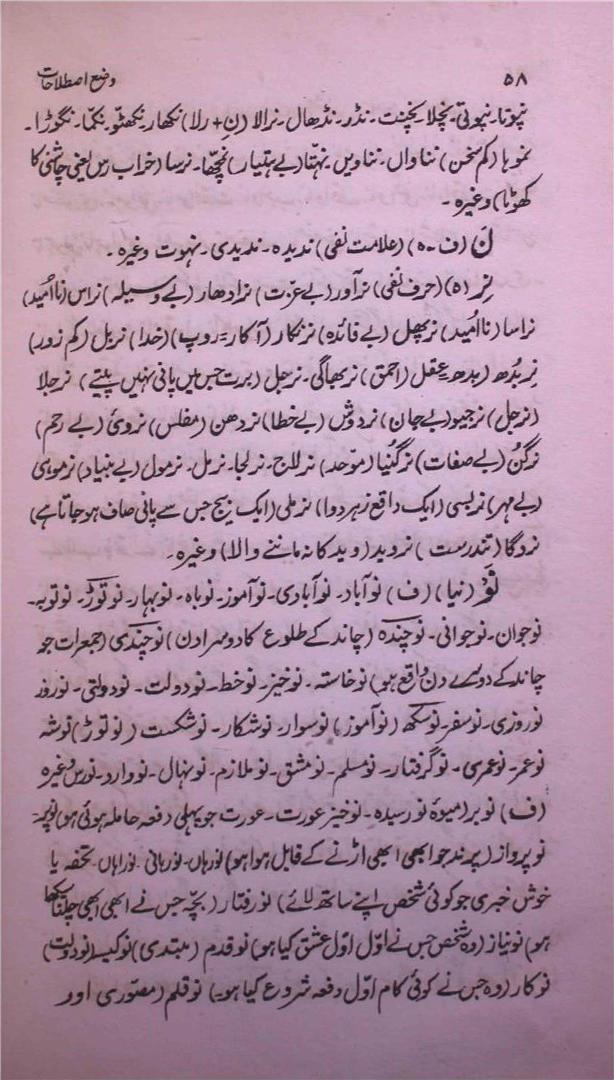 ۵۸ وضع اصطلاحات
نپوتا۔ نپوتی۔ نچلا۔ نچنت۔ نڈر۔ نڈھال۔ نرالا (ن + رلا) نکھار۔ نکھٹو۔ نکمّا۔ نگوڑا۔
نموہا (کم سخن) نناواں۔ نناویں۔ نہتّا (بے ہتیار) نرسا (خراب رس یعنی چاشنی کا
کھوٹا) وغیرہ۔
نَ (ف۔ ہ) (علامت نفی) ندیدہ۔ ندیدی۔ نہوت وغیرہ۔
نِر (ہ) (حرف نفی) نرآور (بے عزت) نرادھار (بے وسیلہ) نراس (ناامید)
نراسا (ناامید) نرپھل (بے فائدہ) نرنکار (آکار = روپ) (خدا) نربل (کم زور)
نِربُدھ (بدھ = عقل (احمق) نربھاگی۔ نرجل (برت جس میں پانی نہیں پیتے) نرجلا
(نرجل) نرجیو (بے جان) نردوش (بے خطا) نردھن (مفلس) نردئ (بے رحم)
نرگُن (بے صفات) نرگُنیا (موّحد) نرلاج۔ نرلجا۔ نرمل۔ نرمول (بے بنیاد) نرموہی
(بے مہر) نربسی (ایک دافع زہر دوا) نرملی (ایک بیج جس سے پانی صاف ہو جاتا ہے)
نروگا (تندرست) نروید (وید کا نہ ماننے والا) وغیرہ۔
نَوْ (نیا) (ف) نوآباد۔ نوآبادی۔ نوآموز۔ نوباہ۔ نوبہار۔ نوتوڑ۔ نوتوبہ۔
نوجوان۔ نوجوانی۔ نوچندہ (چاند کے طلوع کا دوسرا دن) نوچندی (جمعرات جو
چاند کے دوسرے دن واقع ہو) نوخاستہ۔ نوخیز۔ نوخط۔ نودولت۔ نودولتی۔ نوروز
نوروزی۔ نوسفر۔ نوسکھ (نوآموز) نوسوار۔ نوشکار۔ نوشکست (نوتوڑ) نوشہ
نوعمر۔ نوعمری۔ نوگرفتار۔ نومسلم۔ نومشق۔ نوملازم۔ نونہال۔ نووارد۔ نورس وغیرہ
(ف) نوبر (میوۂ نورسیدہ۔ نوخیز عورت۔ عورت جو پہلی دفعہ حاملہ ہوئی ہو)
نوپرواز (پرند جو ابھی ابھی اڑنے کے قابل ہوا ہو) نورہاں۔ نوربانی نوراہاں تحفہ یا
خوش خبری جو کوئی شخص اپنے ساتھ لائے) نورفتار (بچّہ جس نے ابھی ابھی چلنا سیکھا
ہو) نونیاز (وہ شخص جس نے اوّل اوّل عشق کیا ہو) نوقدم (مبتدی) نوکیسہ (نودولت)
نوکار (وہ جس نے کوئی کام اوّل دفعہ شروع کیا ہو۔) نوقلم (مصّوری اور